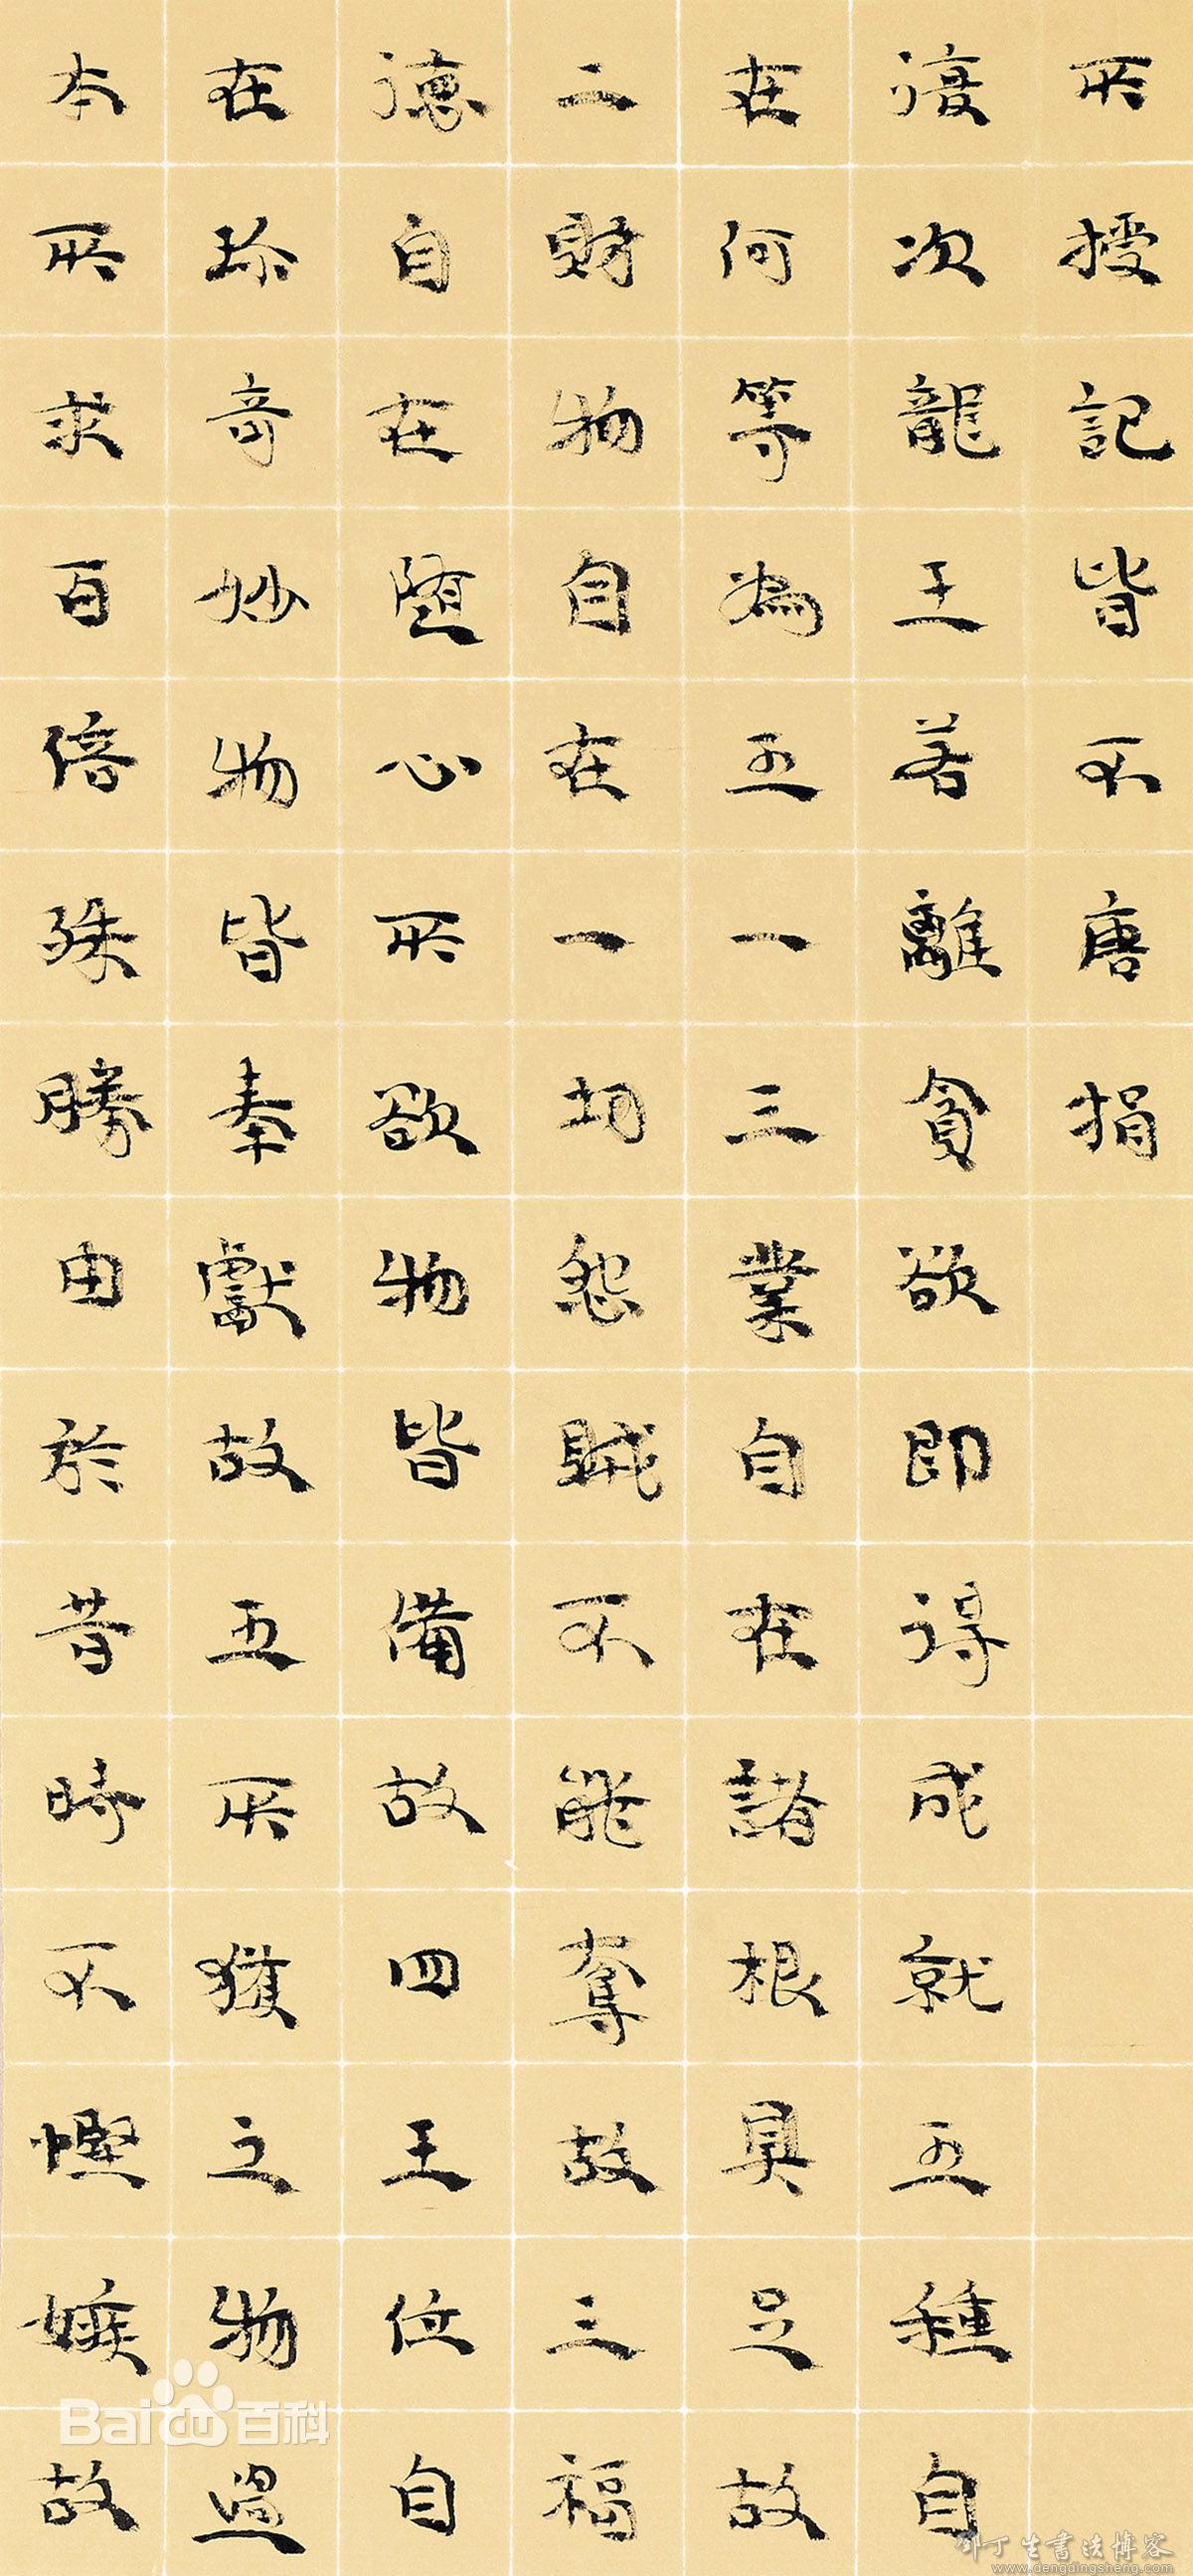 所授記皆不唐捐
復次龍王若離貪欲即得成就五種自
在何等為五一三業自在諸根具足故
二財物自在一切怨賊不能奪故三福
德自在隨心所欲物皆備故四王位自
在珍奇妙物皆奉獻故五所獲之物過
本所求百倍殊勝由於昔時不慳嫉故
Baidu百科
邓丁生書法博客
www.dengdingsheng.com